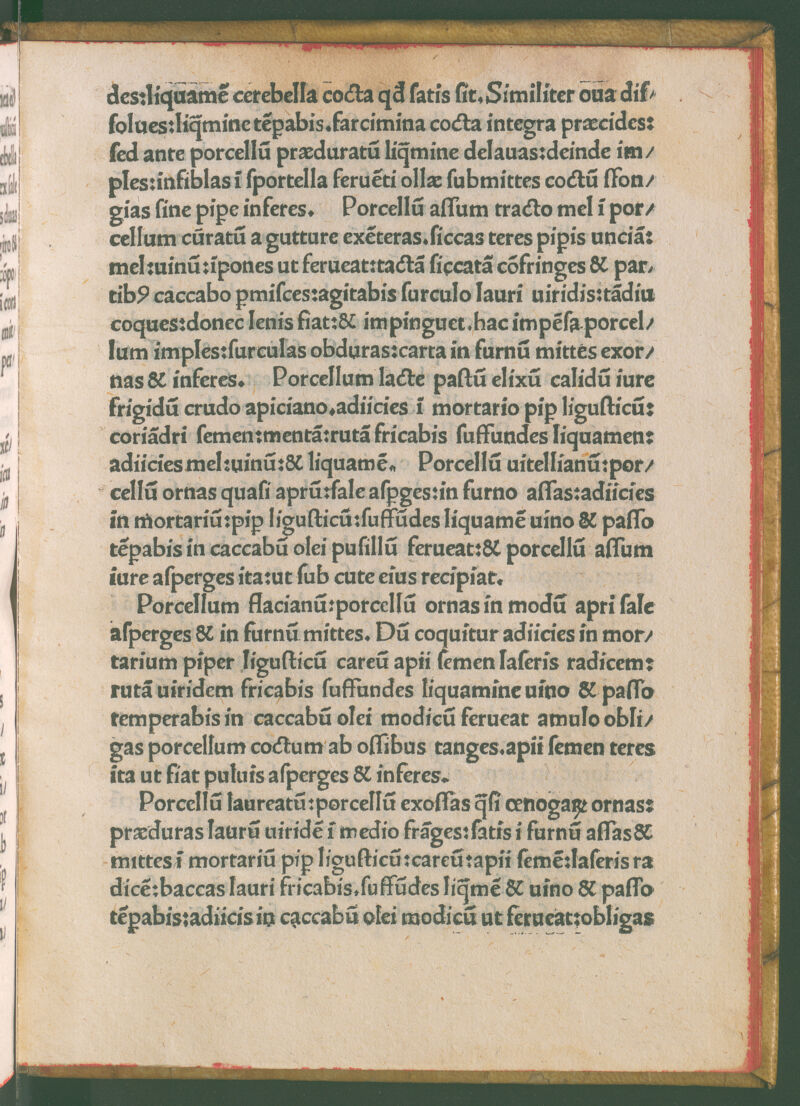 des:liquamē cerebella cocta qđ satis sit. Similiter oua dis/
solues:liq̄mine tēpabis.farcimina cocta integra præcides:
sed ante porcellū præduratū liq̄mine delauas:deinde im/
ples:infiblas ī sportella feruēti ollæ submittes coctū sson/
gias sine pipe inferes. Porcellū assum tracto mel ī por/
cellum cūratū a gutture exēteras.siccas teres pipis unciā:
mel:uinū:īpones ut ferueat:tactā siccatā cōfringes & par/
tibꝰ caccabo pmisces:agitabis surculo lauri uiridis:tādiu
coques:donec lenis fiat:& impinguet.hac impēsa porcel/
lum imples:surculas obduras:carta in furnū mittes exor/
nas & inferes. Porcellum lacte pastū elixū calidū iure
frigidū crudo apiciano.adiicies ī mortario pip ligusticū:
coriādri semen:mentā:rutā fricabis suffundes liquamen:
adiicies mel:uinū:& liquamē. Porcellū uitellianū:por/
cellū ornas quasi aprū:sale aspges:in furno assas:adiicies
in mortariū:pip ligusticū:suffūdes liquamē uino & passo
tēpabis in caccabū olei pusillū ferueat:& porcellū assum
iure asperges ita:ut sub cute eius recipiat.
Porcellum flacianū:porcellū ornas in modū apri sale
asperges & in furnū mittes. Dū coquitur adiicies in mor/
tarium piper ligusticū careū apii semen laseris radicem:
rutā uiridem fricabis suffundes liquamine uino & passo
temperabis in caccabū olei modicū ferueat amulo obli/
gas porcellum coctum ab ossibus tanges.apii semen teres
ita ut fiat puluis asperges & inferes.
Porcellū laureatū:porcellū exossas q̄si œnogaꝝ ornas:
præduras laurū uiridē ī medio frāges:satis i furnū assas &
mittes ī mortariū pip ligusticū:careū:apii semē:laseris ra
dicē:baccas lauri fricabis.suffūdes liq̄mē & uino & passo
tēpabis:adiicis in caccabū olei modicū ut ferueat:obligas